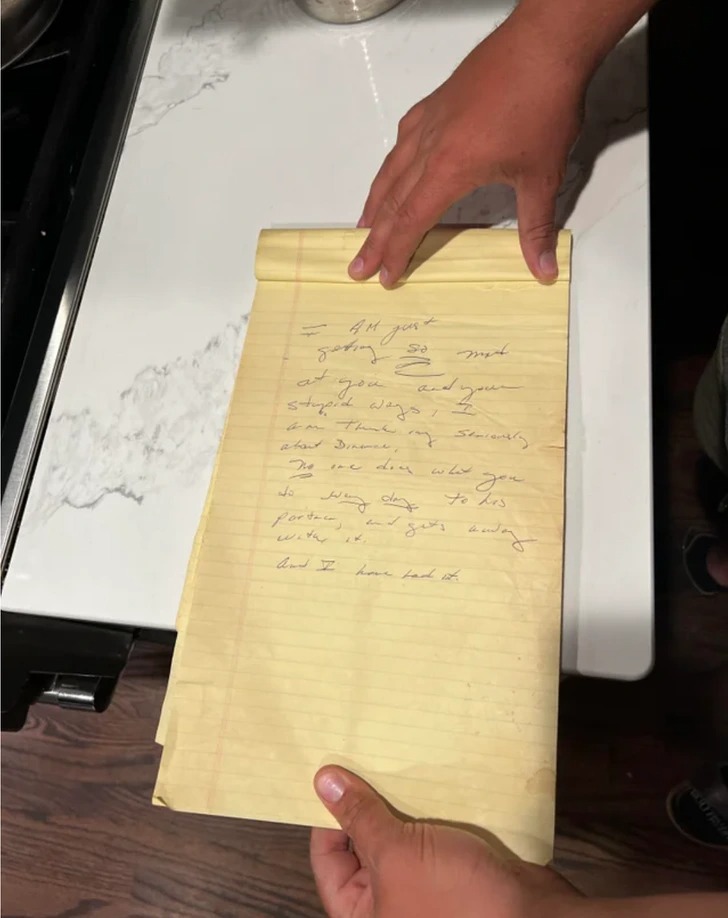 I AM just
getting so mad
at you and your
stupid ways, I
am Thinking seriously
about Divorce,
No one does what you
do day to his
partner, and gets away
with it.
And I have had it.